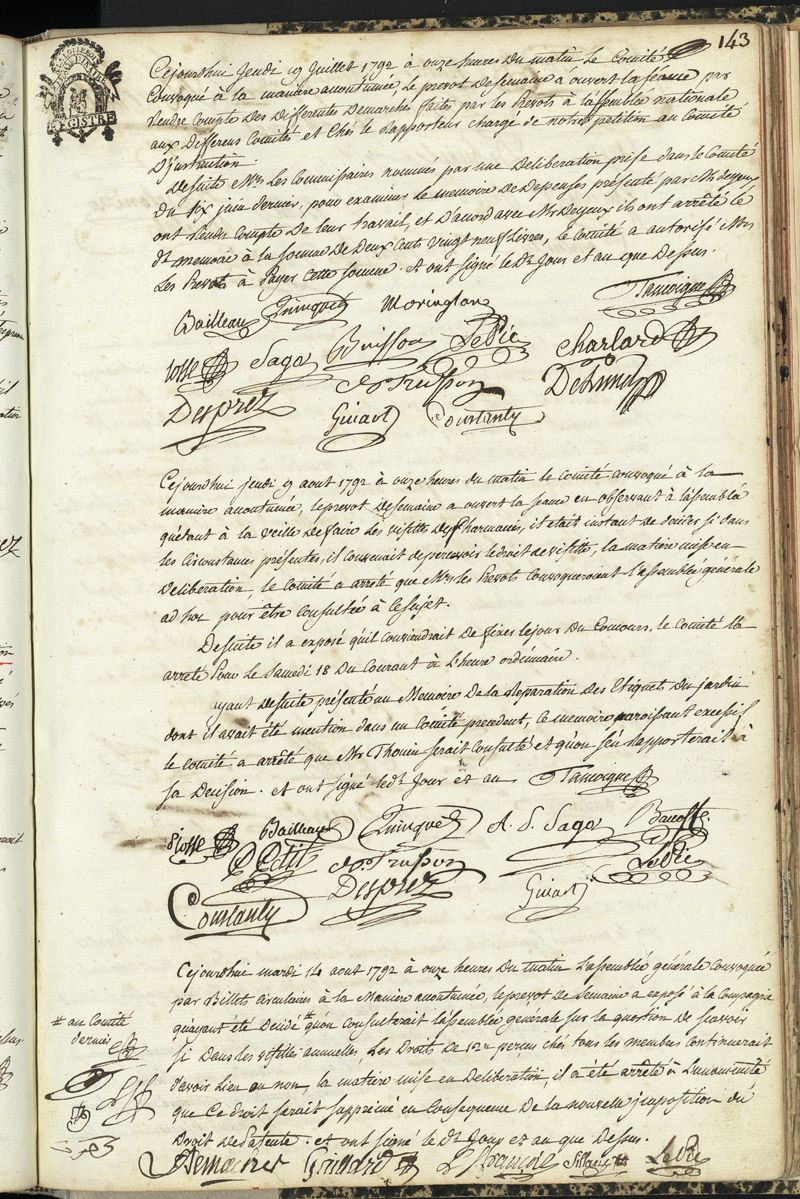 143
REGISTRE
Cejourdhui Jeudi 19 Juillet 1792 à onze heures du matin Le Comité
Convoqué à la maniere accoutumée, Le prevot de semaine a ouvert la séance par
rendre Compte des differentes demarches faites par les Prevots à l'assemblée nationale
aux differens Comités et chés le Rapporteur chargé de notre petition au Comité
D'instruction.
De suite Mrs Les Commissaires nommés par une deliberation prise dans le Comité
du six juin dernier, pour examiner le memoire de depenses présenté par Mr deyeux
ont rendu Compte de leur travail, et d'acord avec Mr Deyeux ils ont arrêté le
dt memoire à la somme de Deux Cents vingt neuf Livres, Le Comité a autorisé Mrs
Les Prevots à Payer cette somme. et ont signé le dt Jour et an que dessus.
Bailleau Quinquet Moringlane Tassoigne
Josse Sage Buisson LePic Charlard
de Trusson Delunel
Desprez Guiart Coustanty
Cejourdhui jeudi 9 aout 1792 à onze heures du matin le Comité convoqué à la
maniere accoutumée, le prevot de semaine a ouvert la séance en observant à l'assemblée
qu'étant à la veille de faire les visittes des Pharmacies, il était instant de decider si dans
les circonstances présentes, il convenait de percevoir le droit de visitte, la matière mise en
Deliberation, le Comité a arreté que Mrs les Prevots convoqueroient l'assemblée générale
ad hoc pour être consultée à ce sujet.
De suite il a exposé qu'il conviendrait de fixer le jour du Concours. le Comité l'a
arreté pour le Samedi 18 du Courant à l'heure ordinaire.
ayant de suite présenté un Memoire de la reparation des Etiquets du jardin
dont il avait été mention dans un Comité précedent, ce memoire paroissant excessif
le Comité a arrêté que Mr Thouin serait consulté et qu'on s'en rapporterait à
sa Decision. et ont signé le dt Jour et an Tassoigne
Josse Bailleau Quinquet A. S. Sage Bacoffe
PPetit de Trusson LePic
Coustanty Desprez Guiart
Cejourdhui mardi 14 aout 1792 à onze heures du matin L'assemblée générale convoquée
par Billets circulaires à la Maniere accoutumée, le prevot de Semaine a exposé à la Compagnie
# au Comité
dernier
qu'ayant été decidé # qu'on consulterait l'assemblée générale sur la question de sçavoir
si dans les visittes annuelles, Les Droits de 12# perçus chés tous les membres continuerait
d'avoir Lieu ou non, la matiere mise en Deliberation, il a été arrêté à L'unanimité
que ce droit serait supprimé en Consequence de la nouvelle imposition du
Droit de Patente. et ont signé le dt Jour et an que dessus.
Demachy Guillard LeFrançois Sillans LePic